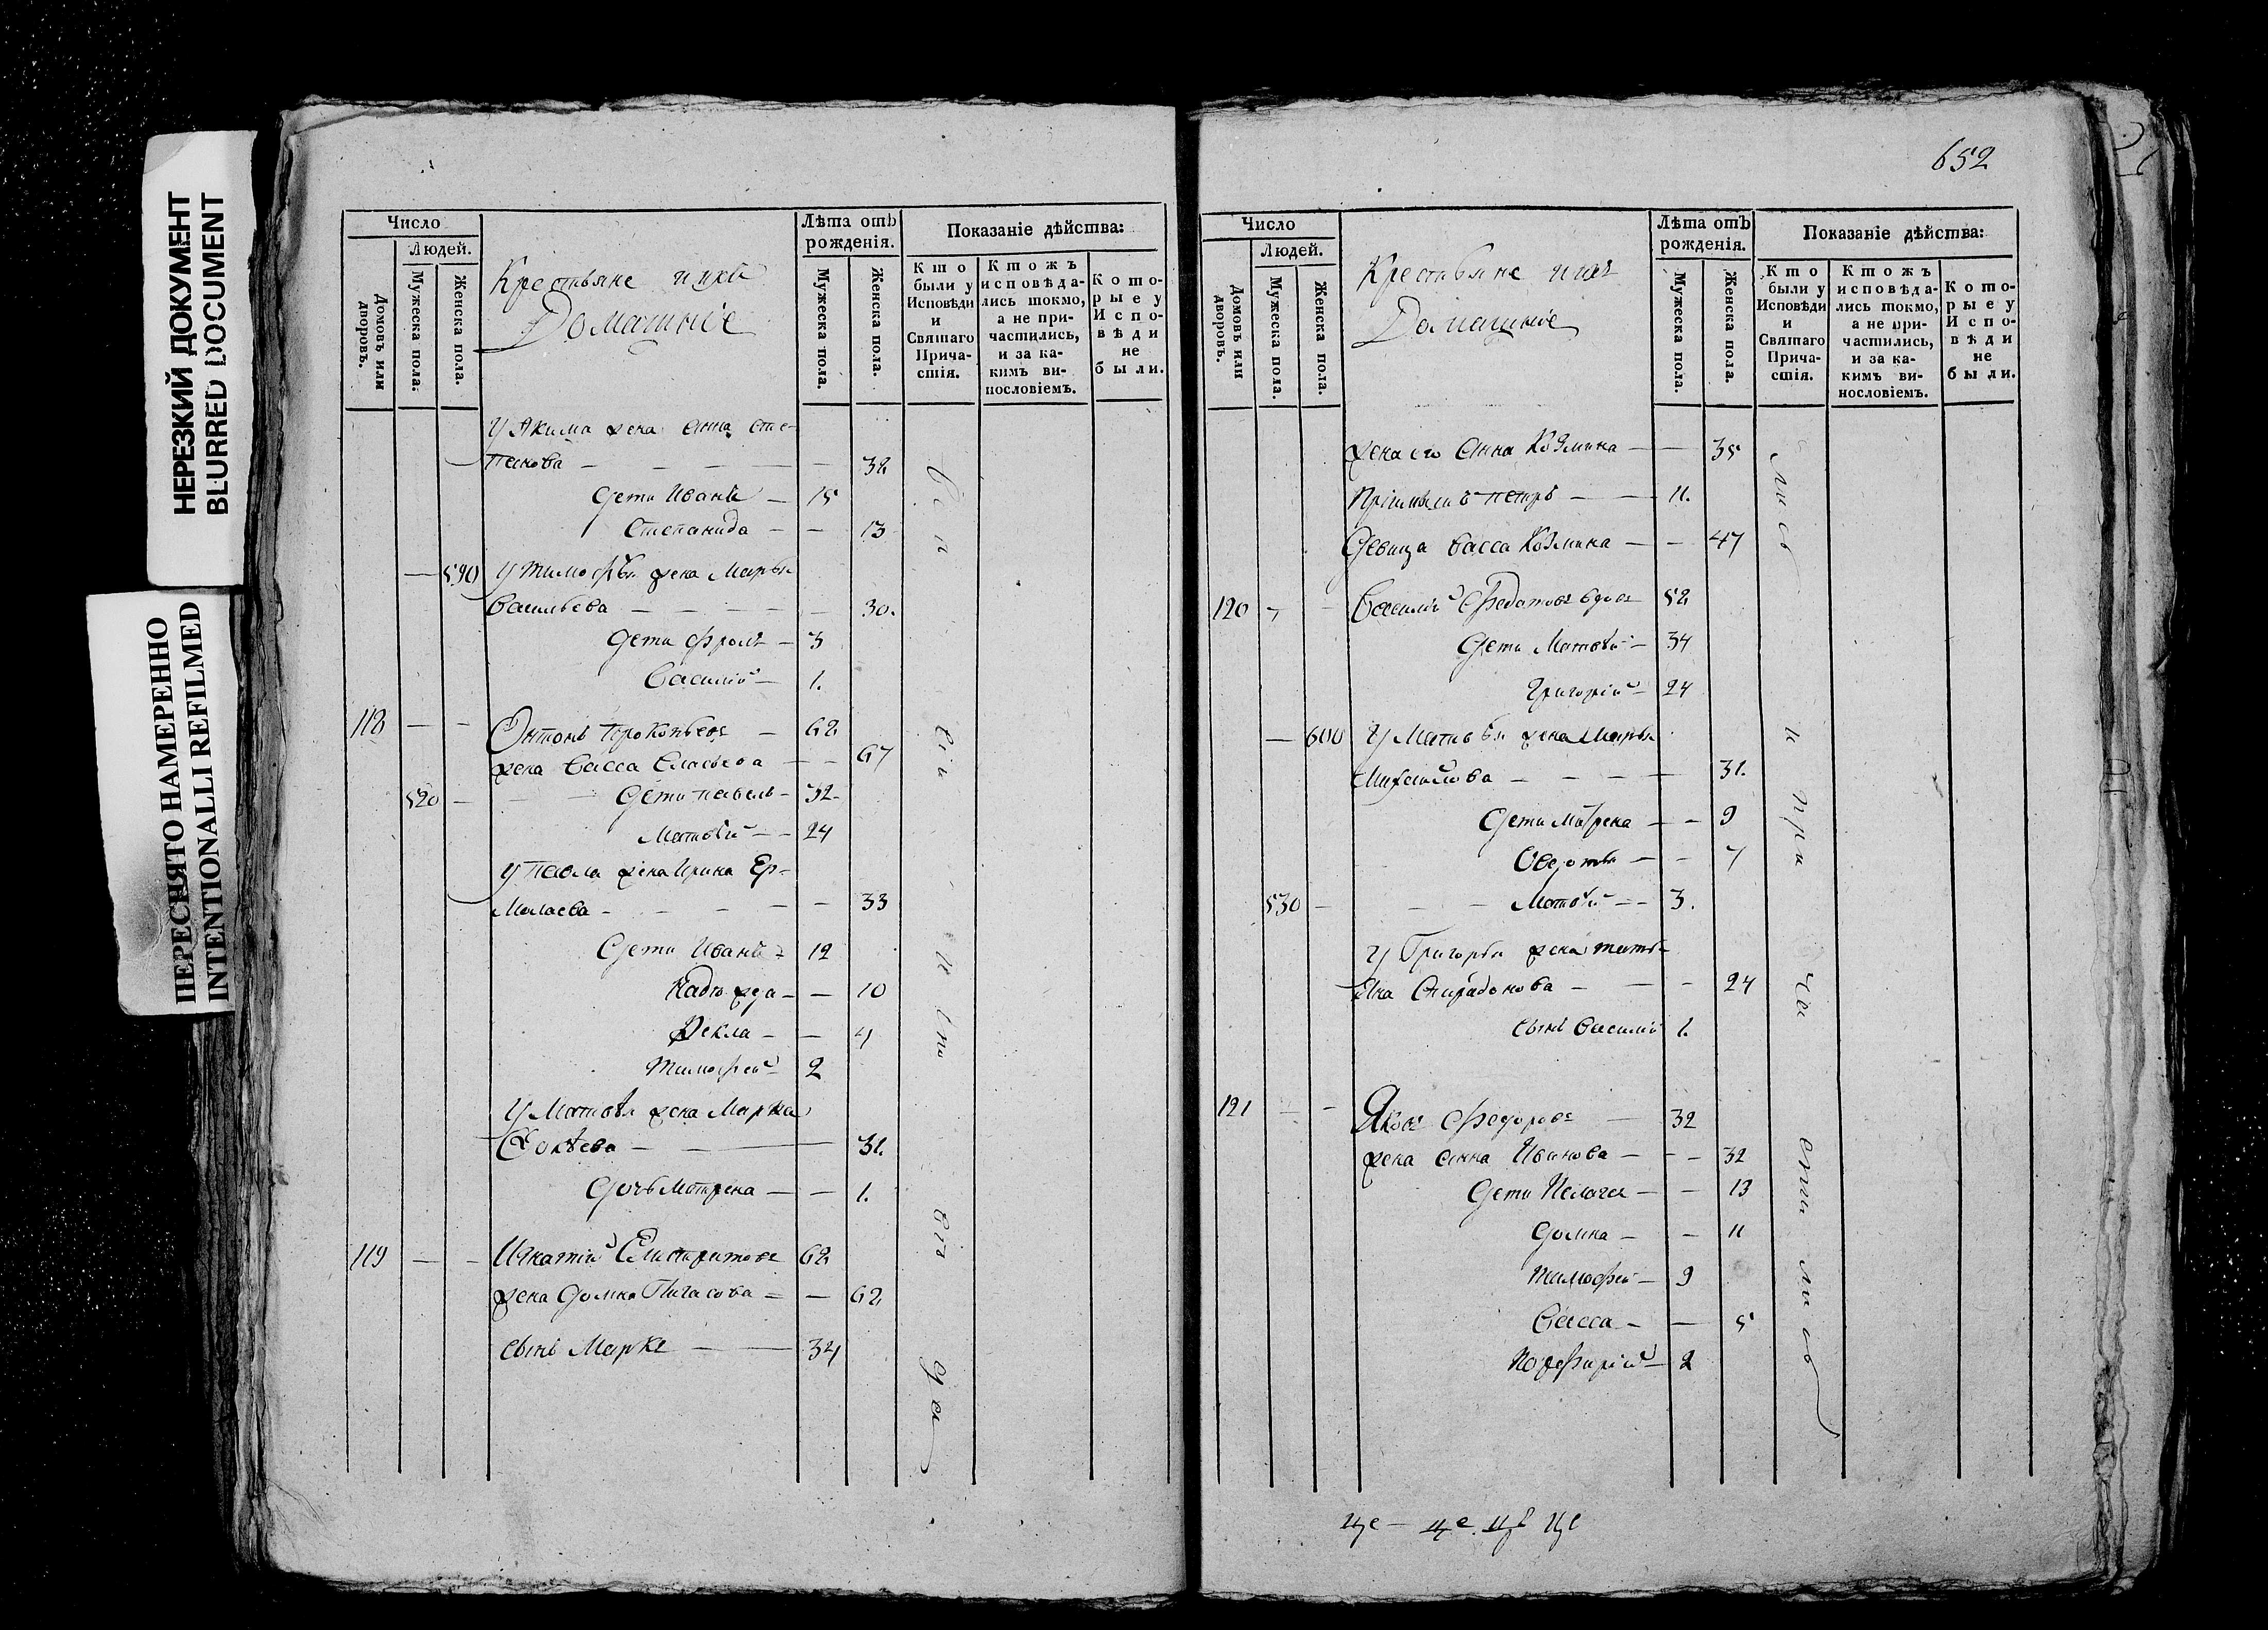 НЕРЕЗКИЙ ДОКУМЕНТ
BLURRED DOCUMENT
ПЕРЕСНЯТО НАМЕРЕННО
INTENTIONALLI REFILMED
Число
Людей.
Домовъ или дворовъ.
Мужеска пола.
Женска пола.
Крестьяне и ихъ
Домашніе
Лѣта отъ рожденія.
Мужеска пола.
Женска пола.
Показаніе дѣйства:
Кто были у Исповѣди и Святаго Причастія.
Ктожъ исповѣдались токмо, а не причастились, и за какимъ винословіемъ.
Которые у Исповѣди не были.
У Акима жена Анна Сте-
панова — 32
Дети Иванъ — 15
Степанида — 13
— 590 У Тимофѣя жена Марья
Васильева — 30.
Дети Фролъ — 3
Василій — 1.
118 — — Онтонъ Прокопьевъ — 62
жена Васса Власьева — 67
520 — Дети Павелъ — 32
Матвѣй — 24
У Павла жена Ирина Ер-
молаева — 33
Дети Иванъ — 12
Надежда — 10
Фекла — 4
Тимофей — 2
У Матвѣя жена Марѳа
— 31.
Дочь Матрена — 1.
119 — — Игнатій Елистратовъ 62
жена Домна Пигасова — 62
сынъ Марке — 34
652
Число
Людей.
Домовъ или дворовъ.
Мужеска пола.
Женска пола.
Крестьяне и ихъ
Домашніе
Лѣта отъ рожденія.
Мужеска пола.
Женска пола.
Показаніе дѣйства:
Кто были у Исповѣди и Святаго Причастія.
Ктожъ исповѣдались токмо, а не причастились, и за какимъ винословіемъ.
Которые у Исповѣди не были.
жена его Анна Козмина — 35
Пріимышъ Петръ — 11.
Девица Васса Козмина — 47
120 — — Василій Федотовъ вдовъ 52
Дети Матвѣй — 34
Григорій — 24
— 600 У Матвѣя жена Марья
Михайлова — 31.
Дети Матрена — 9
Овдотья — 7
530 — Матвѣй — 3.
У Григорья жена Татья-
на Спиридонова — 24
сынъ Василий 1.
121 — — Яковъ Федоровъ — 32
жена Анна Иванова — 32
Дети Пелагея — 13
Домна — 11
Тимофей — 9
Васса — 5
Порфирій — 2